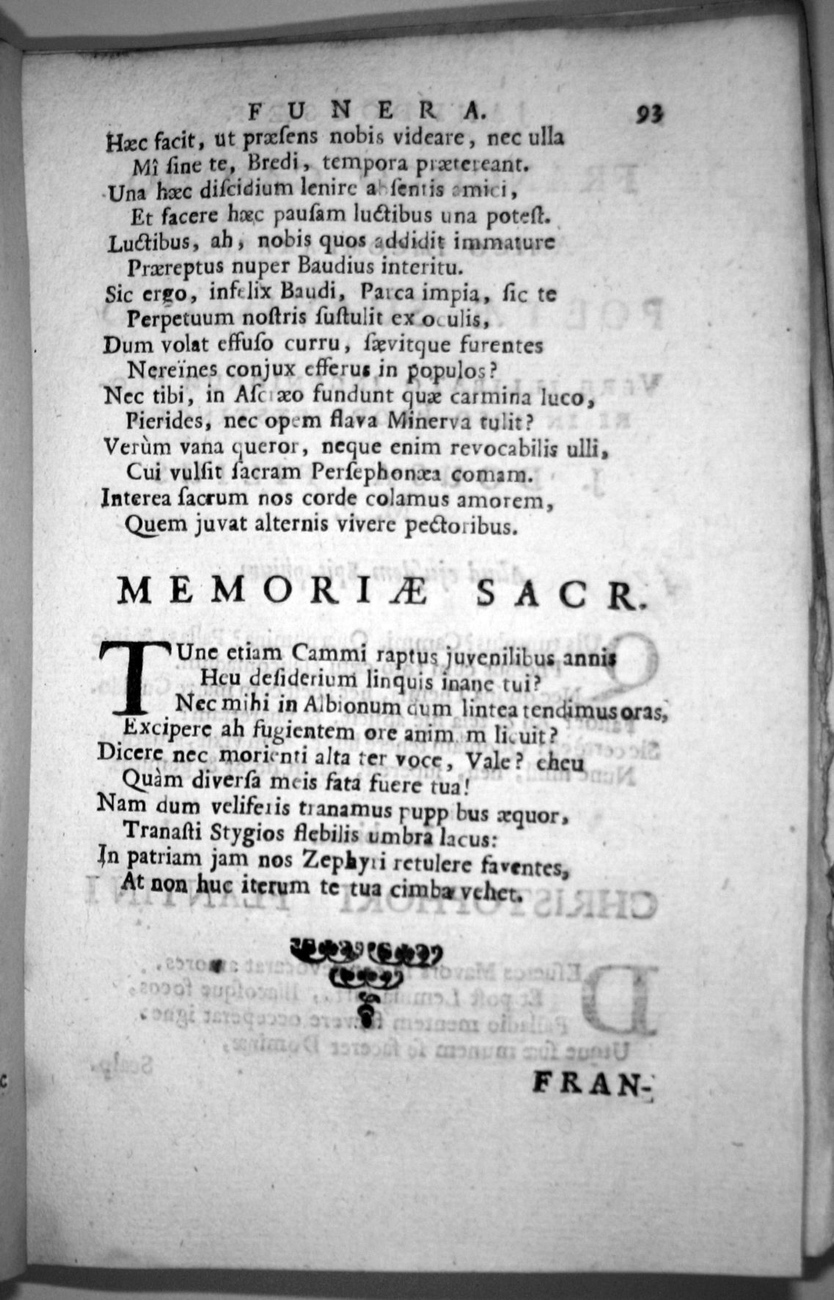 FUNERA. 93
Hæc facit, ut præſens nobis videare, nec ulla
Mî ſine te, Bredi, tempora prætereant.
Una hæc diſcidium lenire abſentis amici,
Et facere hæc pauſam luctibus una poteſt.
Luctibus, ah, nobis quos addidit immature
Præreptus nuper Baudius interitu.
Sic ergo, infelix Baudi, Parca impia, ſic te
Perpetuum noſtris ſuſtulit ex oculis,
Dum volat effuſo curru, ſævitque furentes
Nereïnes conjux efferus in populos?
Nec tibi, in Aſcræo fundunt quæ carmina luco,
Pierides, nec opem flava Minerva tulit?
Verùm vana queror, neque enim revocabilis ulli,
Cui vulſit ſacram Perſephonæa comam.
Interea ſacrum nos corde colamus amorem,
Quem juvat alternis vivere pectoribus.
MEMORIÆ SACR.
TUne etiam Cammi raptus juvenilibus annis
Heu deſiderium linquis inane tui?
Nec mihi in Albionum dum lintea tendimus oras,
Excipere ah fugientem ore anim m licuit?
Dicere nec morienti alta ter voce, Vale? eheu
Quàm diverſa meis fata fuere tua!
Nam dum veliferis tranamus pupp bus æquor,
Tranaſti Stygios flebilis umbra lacus:
In patriam jam nos Zephyri retulere faventes,
At non huc iterum te tua cimba vehet.
FRAN-